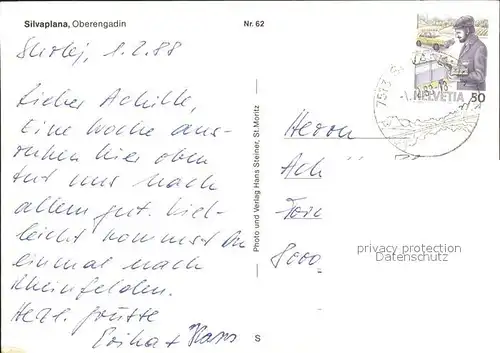 Silvaplana, Oberengadin
Nr. 62
1.2.88
Lieber Achille,
Eine Woche aus-
ruhen hier oben
tut uns nach
allem gut. Viel-
leicht kommst Du
einmal nach
Rheinfelden.
Herzl. Grüsse
Erika + Hans
Photo und Verlag Hans Steiner, St. Moritz
S
7513
HELVETIA 50
Herrn
Ach
8000
privacy protection
Datenschutz